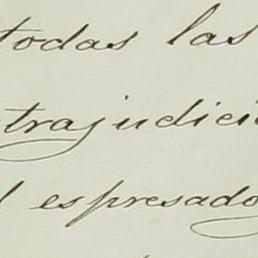 todas las
trajudici
l espresado